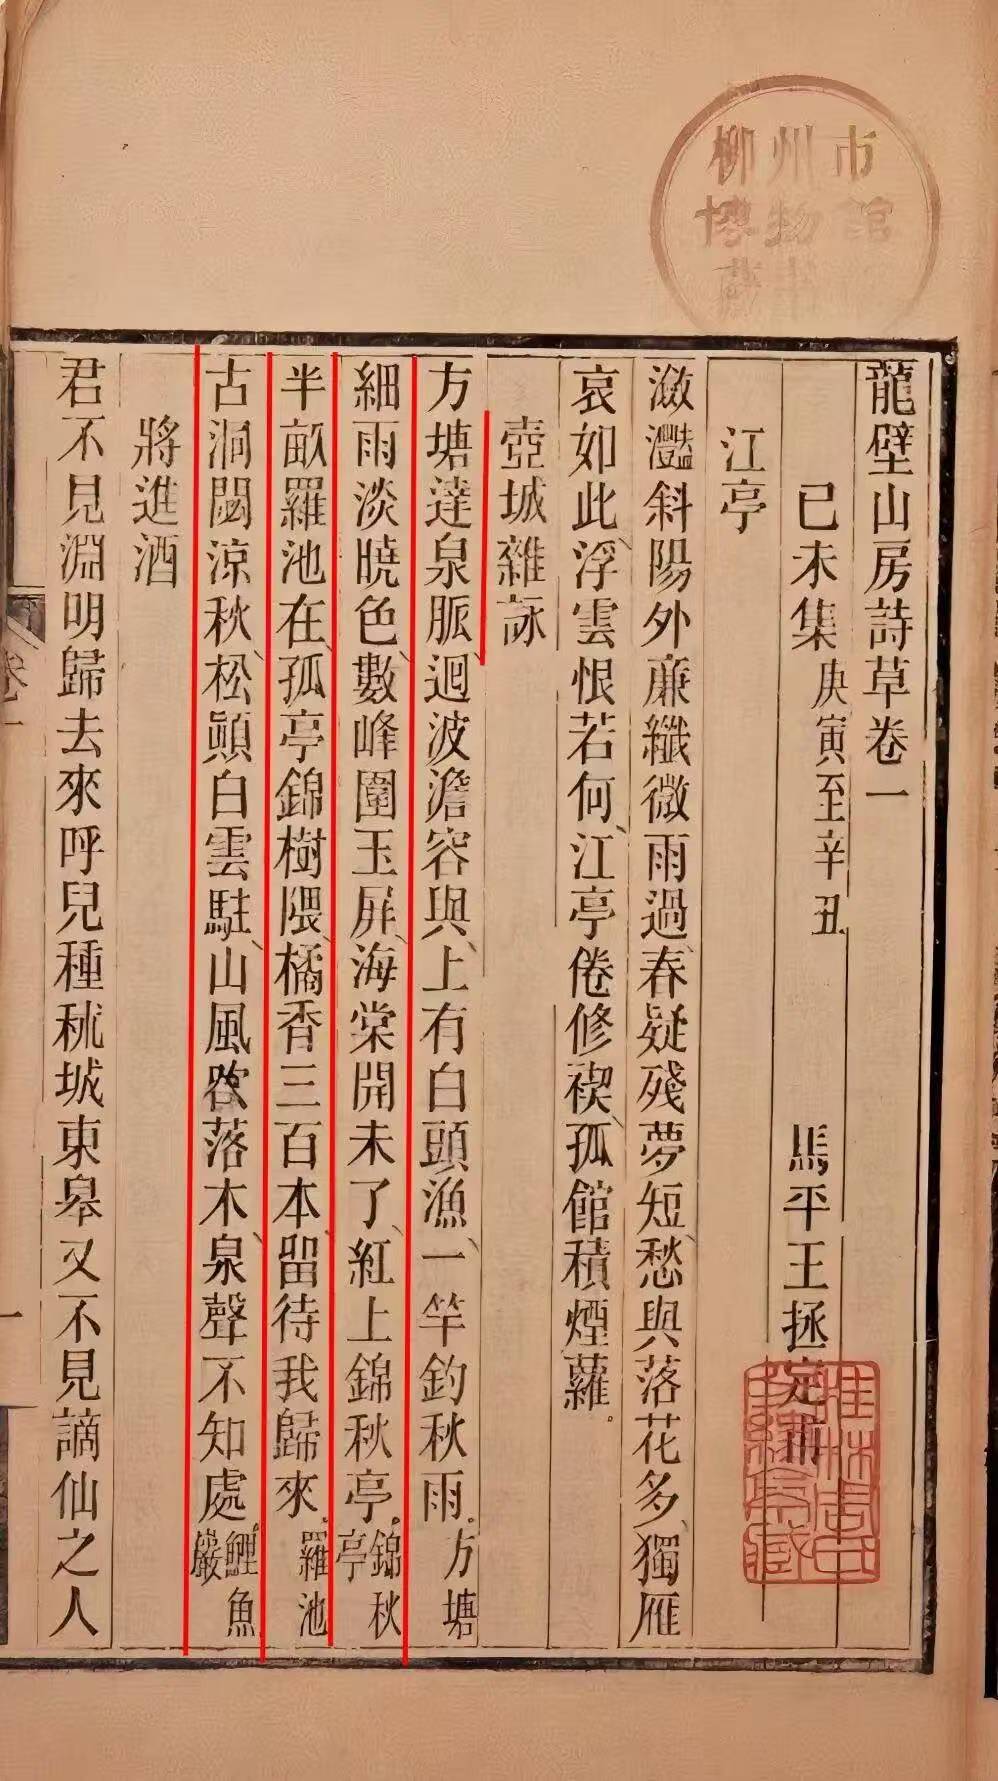 柳州市
博物館
藏書
龍壁山房詩草卷一
已未集庚寅至辛丑
馬平王拯定甫
江亭
瀲灩斜陽外廉纖微雨過春疑殘夢短愁與落花多獨雁
哀如此浮雲恨若何江亭倦修禊孤館積煙蘿
壺城雜詠
方塘達泉脈迴波澹容與上有白頭漁一竿釣秋雨方塘
細雨淡曉色數峰圍玉屏海棠開未了紅上錦秋亭錦秋亭
半畝羅池在孤亭錦樹隈橘香三百本留待我歸來羅池
古洞閟涼秋松顛白雲駐山風吹落木泉聲不知處鯉魚巖
將進酒
君不見淵明歸去來呼兒種秫城東皋又不見謫仙之人
卷一
一